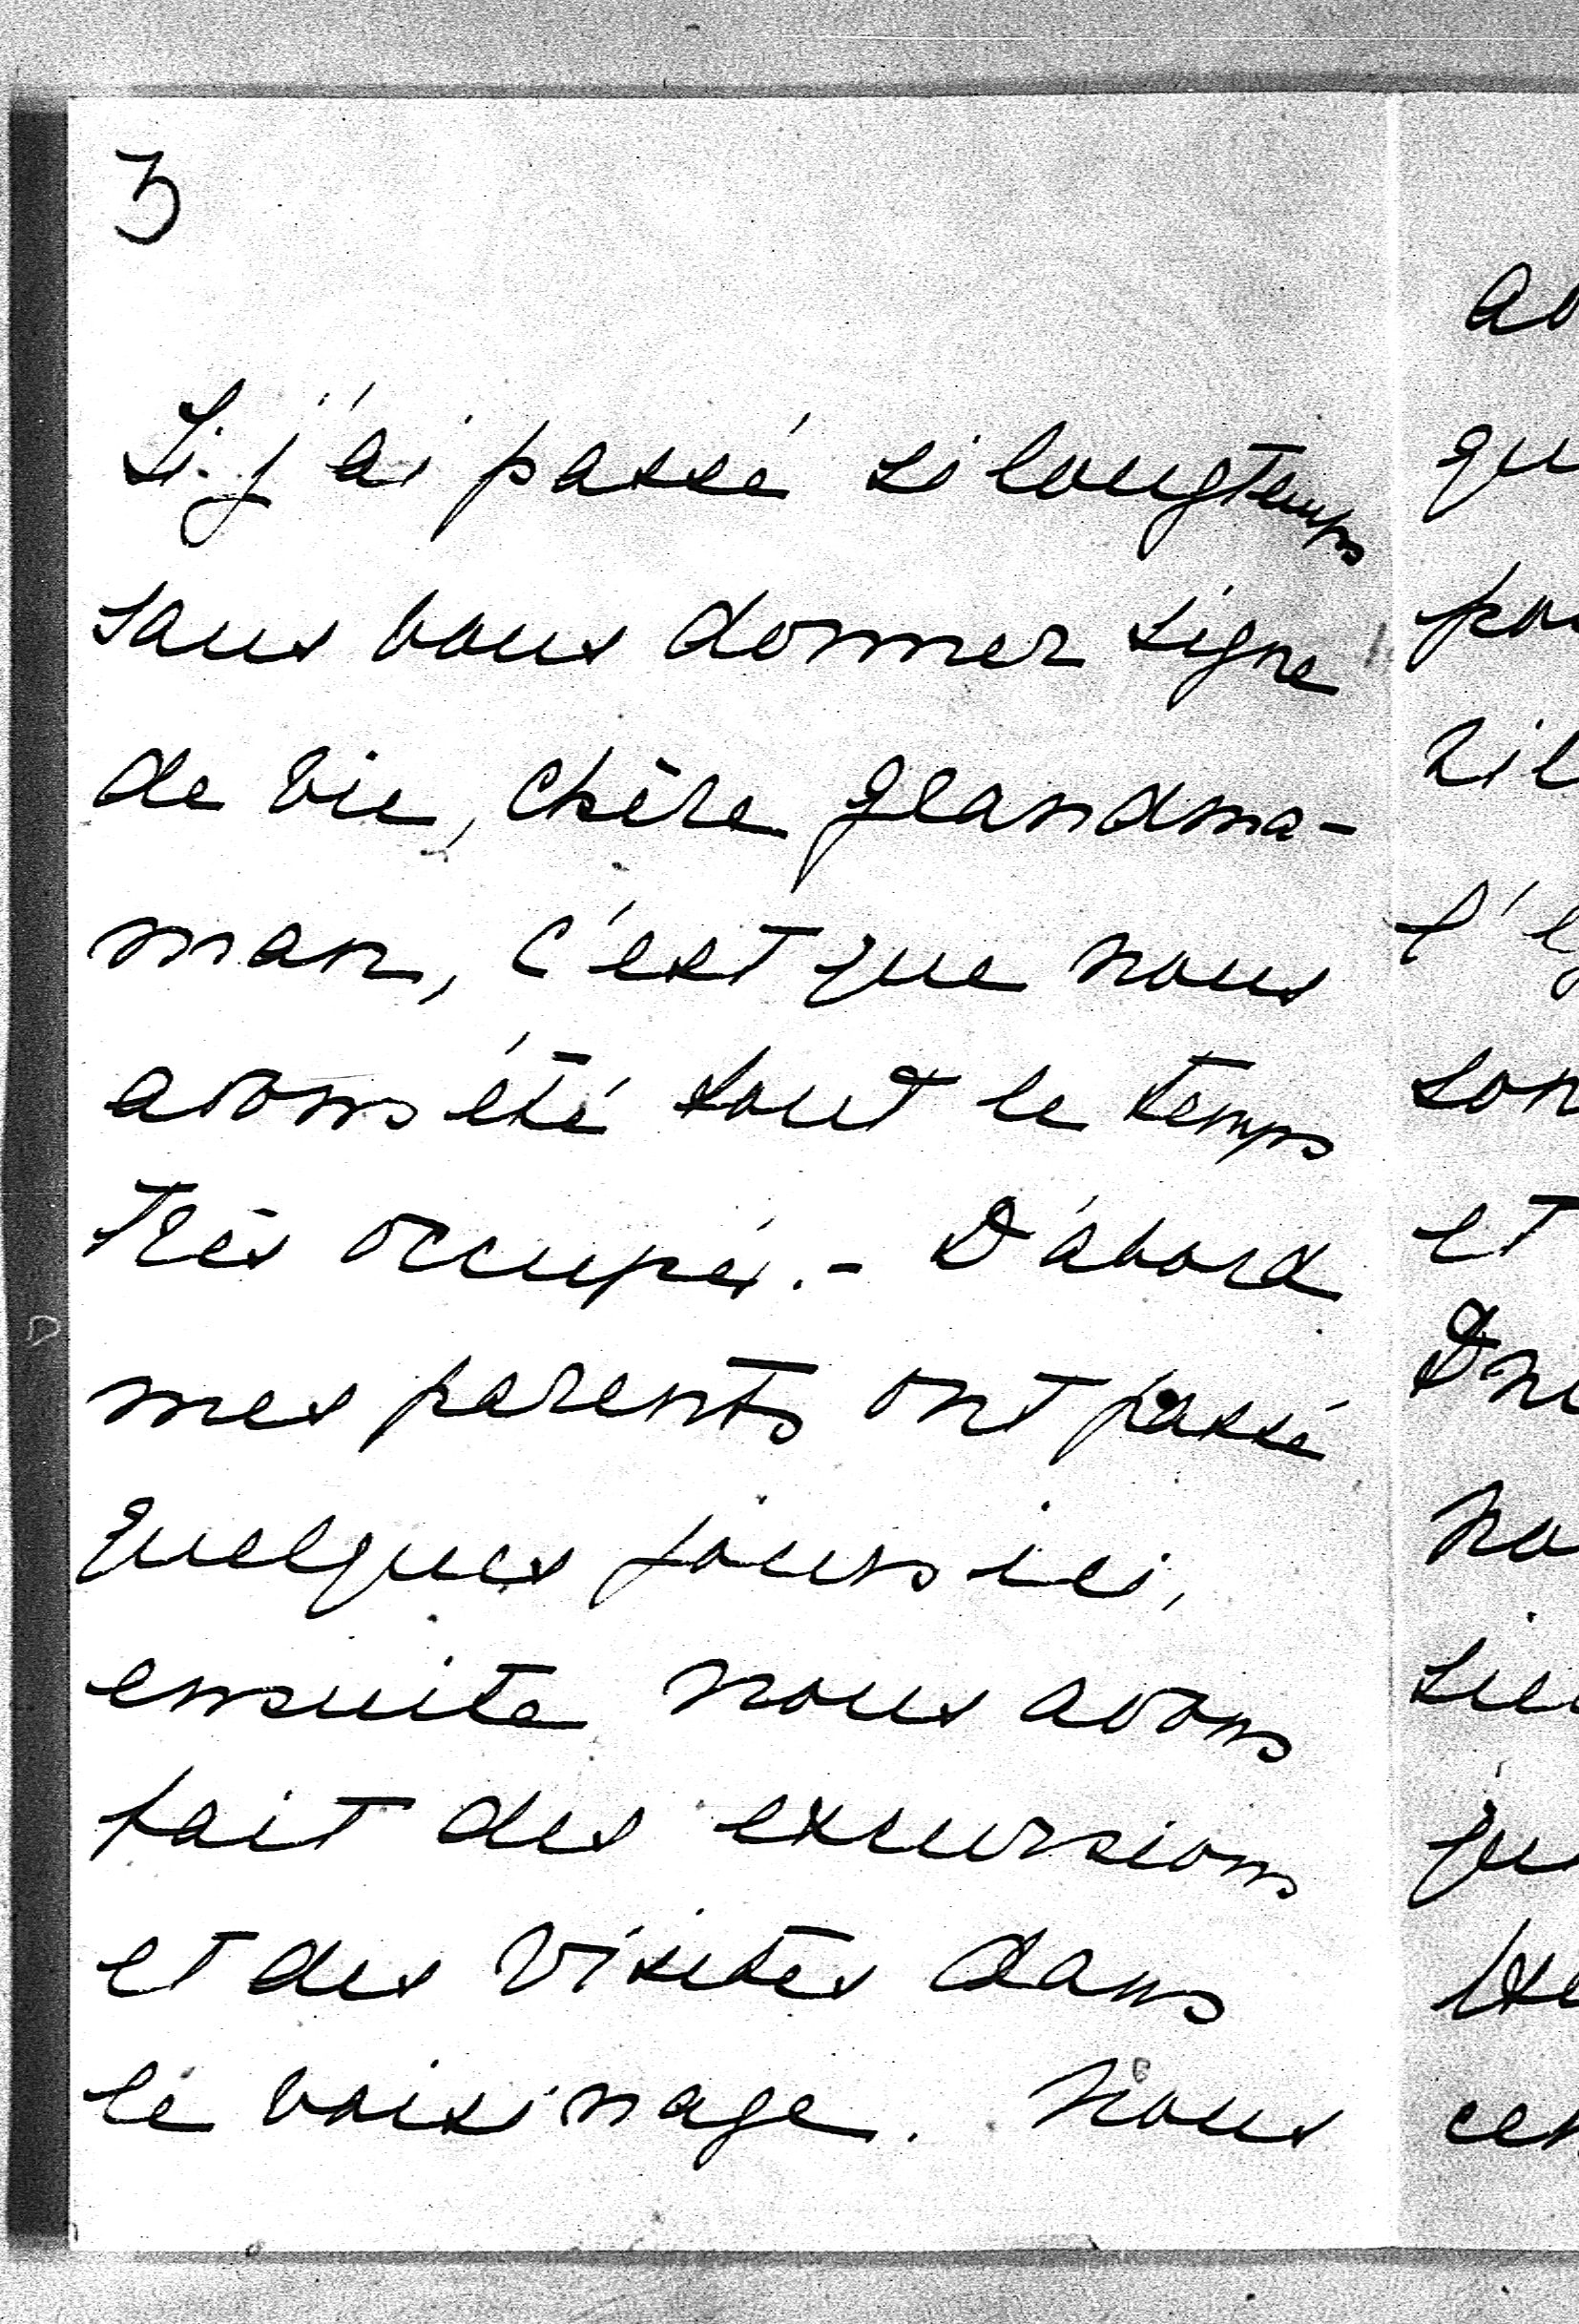 3
Si j'ai passé si longtemps
sans vous donner signe
de vie, chère grandma-
man, c'est que nous
avons été tout le temps
très occupés.- D'abord
mes parents ont passé
quelques jours ici,
ensuite nous avons
fait des excursions
et des visites dans
le voisinage. Nous